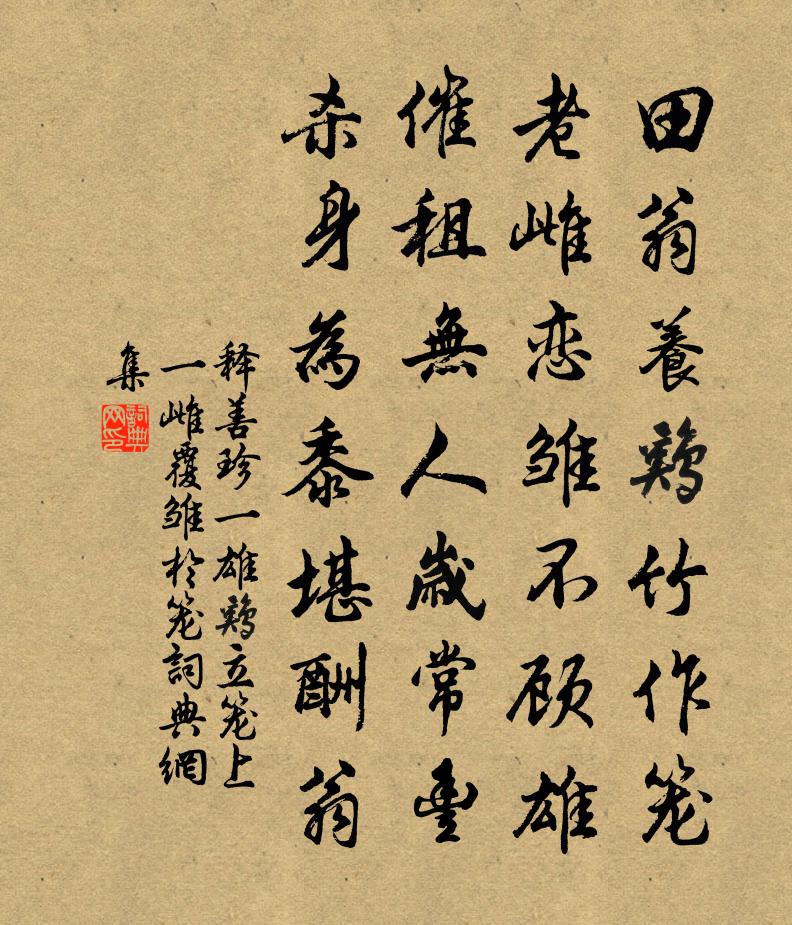 田翁養鷄竹作笼
老雌恋雏不顾雄
催租無人歲常豐
杀身為黍堪酬翁
释善珍一雄鷄立笼上
一雌覆雏於笼詞典網
集
詞典网印